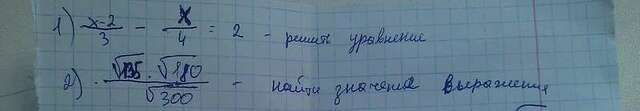 1) x-2/3 - x/4 = 2 - решить уравнение
2) √135 · √180 / √300 - найти значение выражения